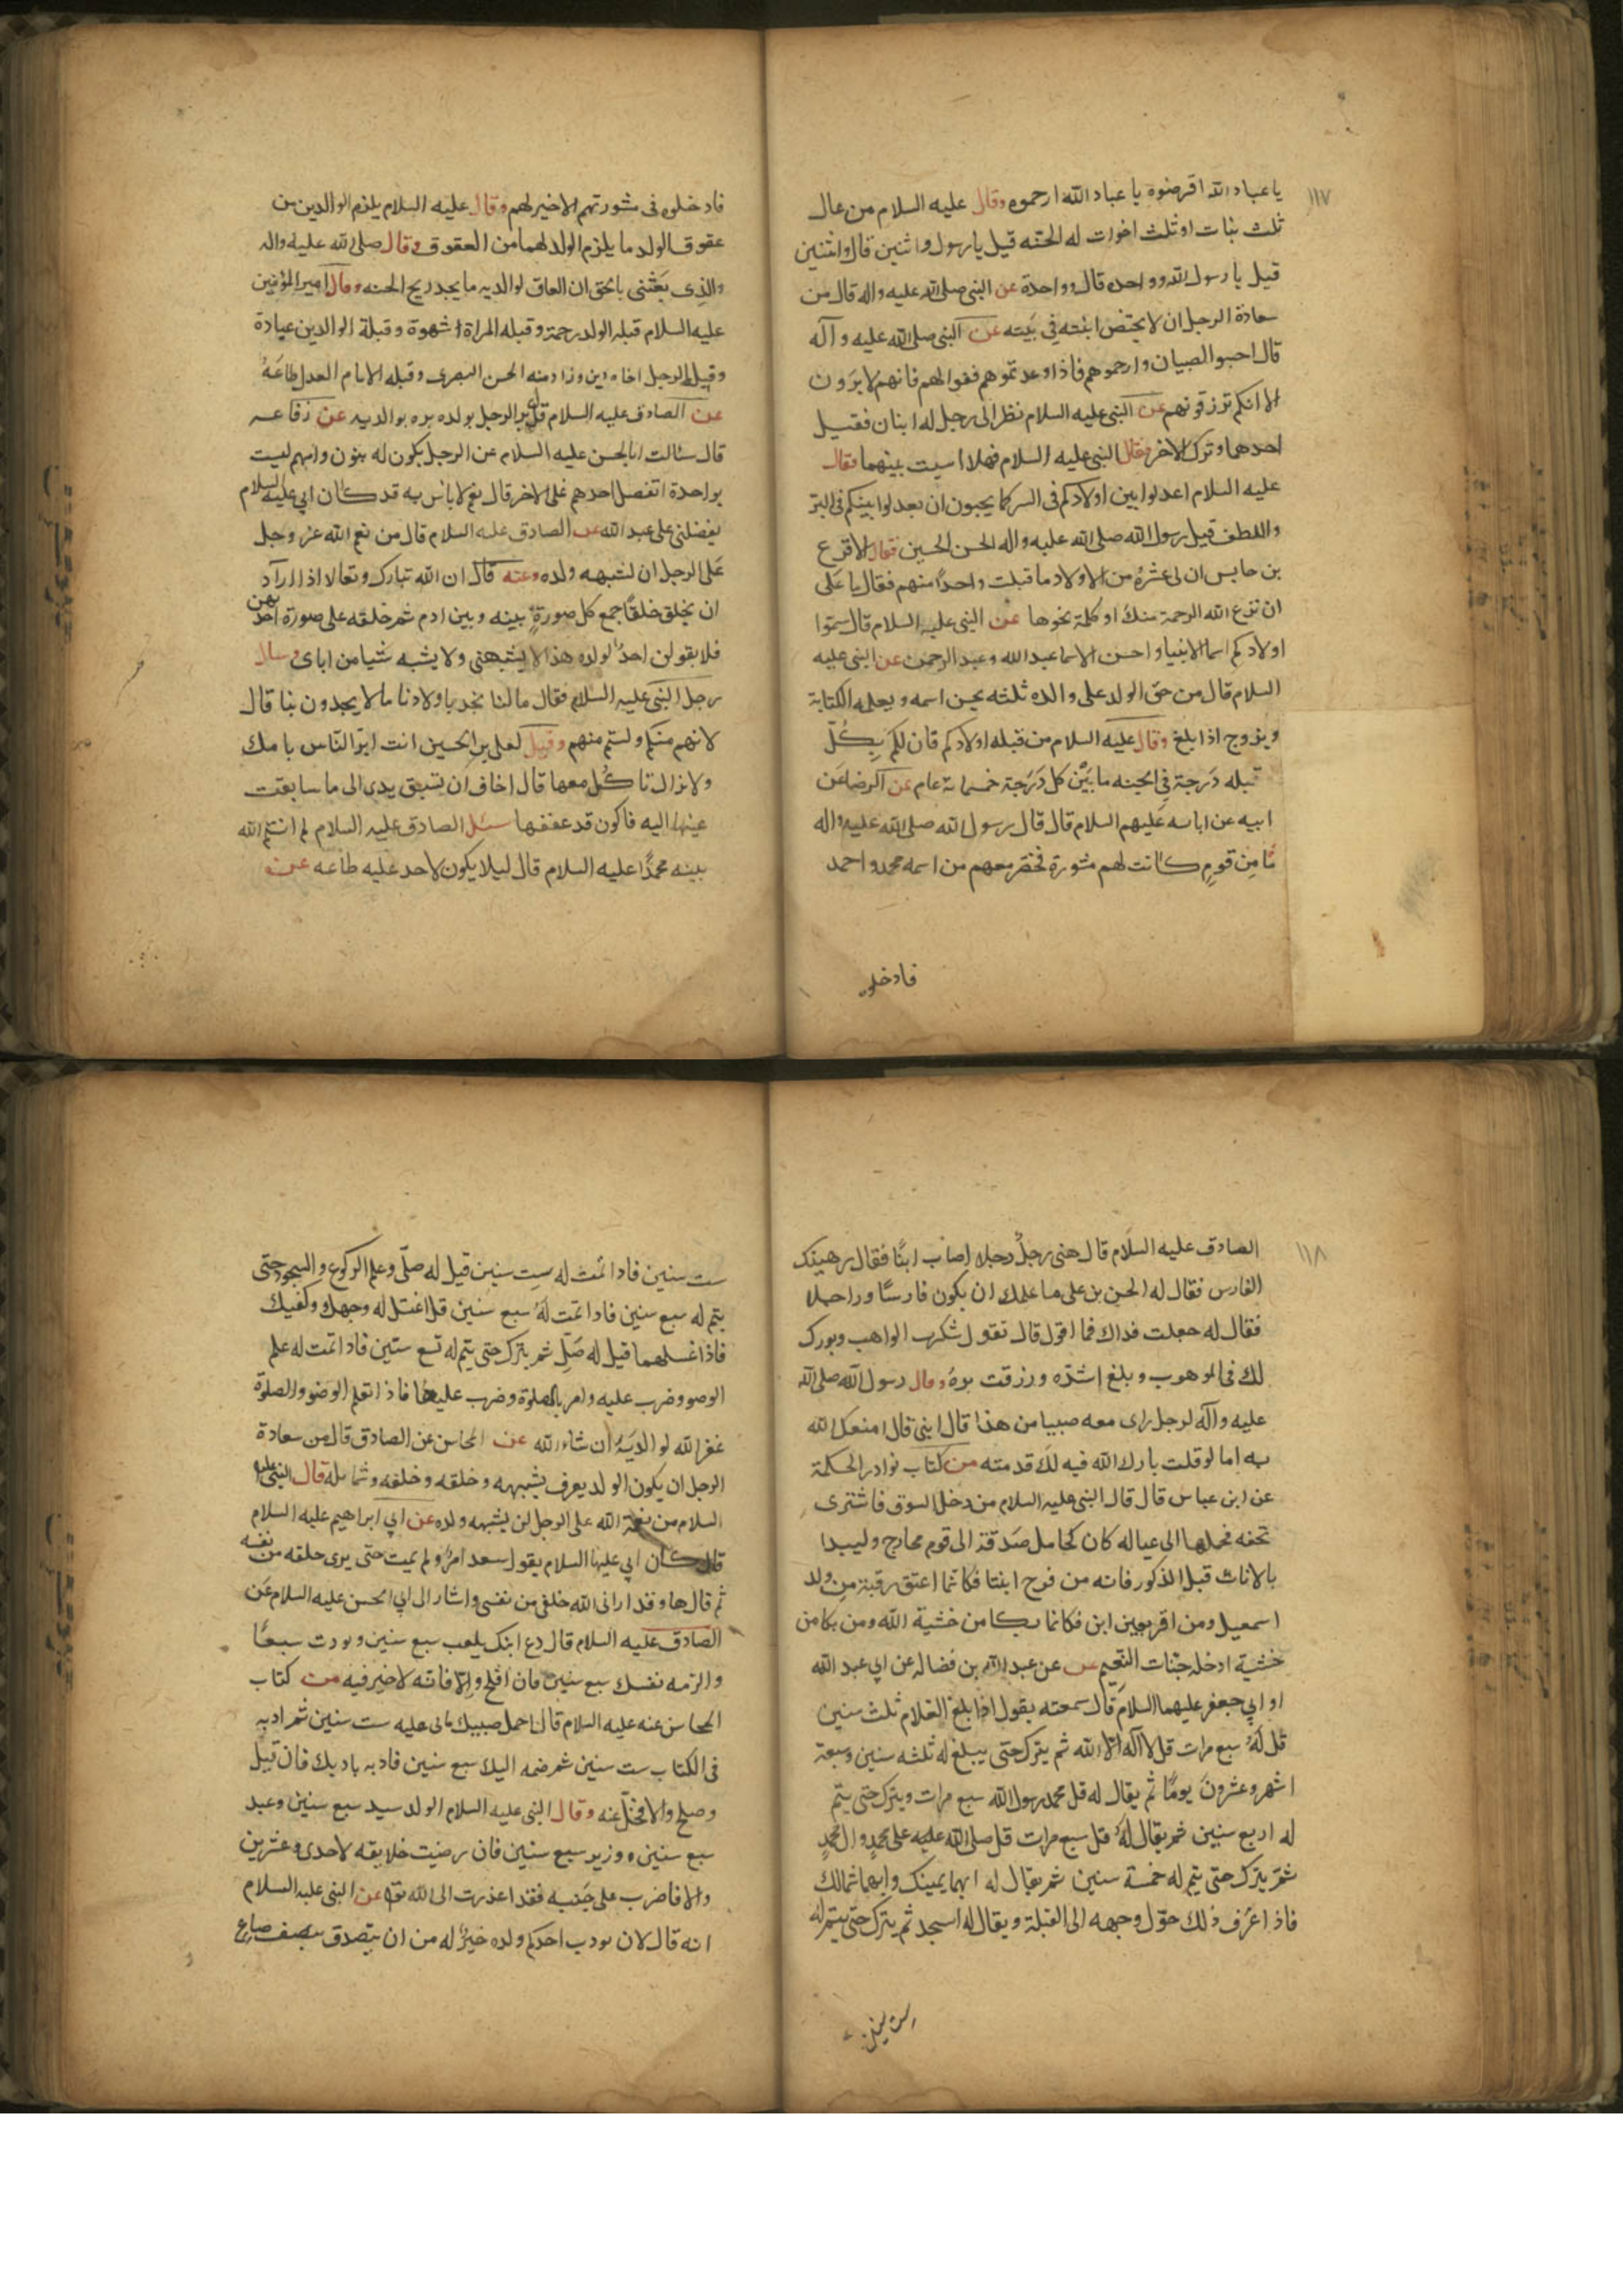 ١١٧
يا عباد الله اقرضوه يا عباد الله ارحموه وقال عليه السلام من عال
ثلث بنات او ثلث اخوات له الجنه قيل يا رسول واثنين قال واثنين
قيل يا رسول الله وواحده قال وواحدة عن النبي صلى الله عليه واله قال من
سعادة الرجل ان لا يحتض ابنته في بيته عن النبي صلى الله عليه وآله
قال احبوا الصبيان وارحموهم فاذا وعدتموهم ففوا لهم فانهم لا يرون
الا انكم ترزقونهم عن النبي عليه السلام نظر الى رجل له ابنان فقبل
احدهما وترك الاخر فقال النبي عليه السلام فهلا اسيت بينهما وقال
عليه السلام اعدلوا بين اولادكم في السر كما يحبون ان يعدلوا بينكم في البر
واللطف قبل رسول الله صلى الله عليه واله الحسن الحسين فقال الاقرع
بن حابس ان لي عشرة من الاولاد ما قبلت واحدا منهم فقال يا على
ان نزع الله الرحمة منك او كلمة نحوها عن النبي عليه السلام قال سموا
اولادكم اسما الانبيا واحسن الاسما عبد الله وعبد الرحمن عن النبي عليه
السلام قال من حق الولد على والده ثلثه يحسن اسمه ويعلمه الكتابة
ويزوج اذا بلغ وقال عليه السلام من قبله اولادكم فان لكم بكل
قبله درجة في الجنه ما بين كل درجة خمسمائة عام عن الرضا عن
ابيه عن ابائه عليهم السلام قال قال رسول الله صلى الله عليه واله
ما من قوم كانت لهم مشورة فحضر معهم من اسمه محمد واحمد
فادخلوه
فادخلوه في مشورتهم الا خير لهم وقال عليه السلام يلزم الوالدين من
عقوق الولد ما يلزم الولد لهما من العقوق وقال صلى الله عليه واله
والذي بعثني بالحق ان العاق لوالديه ما يجد ريح الجنه وقال امير المؤمنين
عليه السلام قبلة الولد رحمة وقبله المراة شهوة وقبلة الوالدين عبادة
وقبله الرجل اخاه دين وزاد منه الحسن البصرى وقبله الامام العدل طاعة
عن الصادق عليه السلام قال بر الرجل بولده بره بوالديه عن رفاعه
قال سئالت ابا الحسن عليه السلام عن الرجل يكون له بنون وامهم ليست
بواحدة اتفضل احدهم على الاخر قال نعم لا باس به قد كان ابي عليه السلام
يفضلني على عبد الله عن الصادق عليه السلام قال من نعم الله عز وجل
على الرجل ان يشبهه ولده وعنه قال ان الله تبارك وتعالا اذا اراد
ان يخلق خلقا جمع كل صورة بينه وبين ادم ثم خلقه على صورة احدهن
فلا يقولن احد لولده هذا لا يشبهني ولا يشبه شيا من اباى وسال
رجل النبي عليه السلام فقال ما لنا نجد باولادنا ما لا يجدون بنا قال
لانهم منكم ولستم منهم وقيل لعلى بن الحسين انت ابر الناس بامك
ولا نراك تاكل معها قال اخاف ان تسبق يدى الى ما سابقت
عينها اليه فاكون قد عققتها سئل الصادق عليه السلام لم ايتم الله
نبيه محمدا عليه السلام قال ليلا يكون لاحد عليه طاعه عن
١١٨
الصادق عليه السلام قال هنى رجل رجلا اصاب ابنا فقال يهنيك
الفارس فقال له الحسن بن على ما علمك ان يكون فارسا وراجلا
فقال له جعلت فداك فما اقول قال تقول شكرت الواهب وبورك
لك في الموهوب وبلغ اشده ورزقت بره وقال رسول الله صلى الله
عليه وآله لرجل راى معه صبيا من هذا قال ابني قال امتعك الله
به اما لو قلت بارك الله فيه لك قدمته من كتاب نوادر الحكمة
عن ابن عباس قال قال النبي عليه السلام من دخل السوق فاشترى
تحفه فحملها الى عياله كان كحامل صدقة الى قوم محاويج وليبدا
بالاناث قبل الذكور فانه من فرح ابنتا فكانما اعتق رقبة من ولد
اسمعيل ومن اقر بعين ابن فكانما بكا من خشية الله ومن بكا من
خشية ادخله جنات النعيم عن عبد الله بن فضاله عن ابي عبد الله
او ابي جعفر عليهما السلام قال سمعته يقول اذا بلغ الغلام ثلث سنين
قل له سبع مرات قل لا اله الا الله ثم يترك حتى يبلغ له ثلثه سنين وسبعة
اشهر وعشرون يوما ثم يقال له قل محمد رسول الله سبع مرات ويترك حتى يتم
له اربع سنين ثم يقال له قل سبع مرات قل صلى الله عليه على محمد وال محمد
ثم يترك حتى يتم له خمسة سنين ثم يقال له ايهما يمينك وايهما شمالك
فاذا عرف ذلك حول وجهه الى القبلة ويقال له اسجد ثم يترك حتى يتم له
ست سنين
ست سنين فاذا تمت له ست سنين قيل له صلى وعلم الركوع والسجود حتى
يتم له سبع سنين فاذا تمت له سبع سنين قل اغسل له وجهك وكفيك
فاذا غسلهما قيل له صل ثم يترك حتى يتم له تسع سنين فاذا تمت له علم
الوضو وضرب عليه وامر بالصلوة وضرب عليها فاذا تعلم الوضو والصلوة
غفر الله لوالديه ان شاء الله عن المحاسن عن الصادق قال من سعادة
الرجل ان يكون الولد يعرف بشبهه وخلقه وخلقه وشمايله قال النبي عليه
السلام من نعمة الله على الرجل ان يشبهه ولده عن ابي ابراهيم عليه السلام
قال كان ابي عليه السلام يقول سعد امرؤ لم يمت حتى يرى خلفه من نفسه
ثم قال ها وقد ارانى الله خلفى من نفسى واشار الى ابي الحسن عليه السلام عن
الصادق عليه السلام قال دع ابنك يلعب سبع سنين ويودب سبعا
والزمه نفسك سبع سنين فان افلح والا فانه لا خير فيه من كتاب
المحاسن عنه عليه السلام قال احمل صبيك ياتى عليه ست سنين ثم ادبه
في الكتاب ست سنين ثم ضمه اليك سبع سنين فادبه بادبك فان قبل
وصلح والا فخل عنه وقال النبي عليه السلام الولد سيد سبع سنين وعبد
سبع سنين ووزير سبع سنين فان رضيت خلايقه لاحدى وعشرين
والا فاضرب على جنبه فقد اعذرت الى الله تعالى عن النبي عليه السلام
انه قال لان يودب احدكم ولده خير له من ان يتصدق بنصف صاع